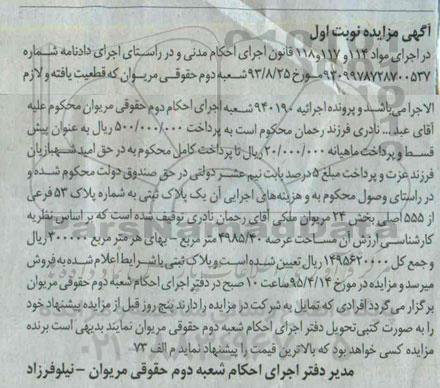 آگهی مزایده نوبت اول
در اجرای مواد ۱۱۴و ۱۱۷و۱۱۸ قانون اجرای احکام مدنی و در راستای اجرای دادنامه شماره
۹۳۰۹۹۷۸۷۲۸۷۰۰۵۳۷مورخ ۹۳/۸/۲۵ شعبه دوم حقوقی مریوان که قطعیت یافته و لازم
الاجرا می‌باشند و پرونده اجرائیه ۹۴۰۱۹۰ شعبه اجرای احکام دوم حقوقی مریوان محکوم علیه
آقای عبد... نادری فرزند رحمان محکوم است به پرداخت ۵۰۰/۰۰۰/۰۰۰ ریال به عنوان پیش
قسط و پرداخت ماهیانه ۲۰/۰۰۰/۰۰۰ ریال تا پرداخت کامل محکوم به در حق امید شهبازیان
فرزند عزت و پرداخت مبلغ ۵ درصد بابت نیم عشر دولتی در حق صندوق دولت محکوم شده و
در راستای وصول محکوم به و هزینه‌های اجرایی آن یک پلاک ثبتی به شماره پلاک ۵۳ فرعی
از ۵۵۵ اصلی بخش ۲۴ مریوان ملکی آقای رحمان نادری توقیف شده است که بر اساس نظریه
کارشناسی ارزش آن مساحت عرصه ۴۹۸۵/۴۰ متر مربع - بهای هر متر مربع ۳۰۰۰۰۰ ریال
و جمع کل ۱۴۹۵۶۲۰۰۰۰ ریال تعیین شده است و پلاک ثبتی با شرایط اعلام شده به فروش
میرسد و مزایده در مورخ ۹۵/۴/۱۴ ساعت ۱۰ صبح در دفتر اجرای احکام شعبه دوم مریوان
برگزار می‌گردد افرادی که تمایل به شرکت در مزایده را دارند پنج روز قبل از مزایده پیشنهاد خود
را به صورت کتبی تحویل دفتر اجرای احکام شعبه دوم حقوقی مریوان نمایند بدیهی است برنده
مزایده کسی خواهد بود که بالاترین قیمت را پیشنهاد نماید م الف ۷۳
مدیر دفتر اجرای احکام شعبه دوم حقوقی مریوان - نیلوفرزاد
ParsNamadData